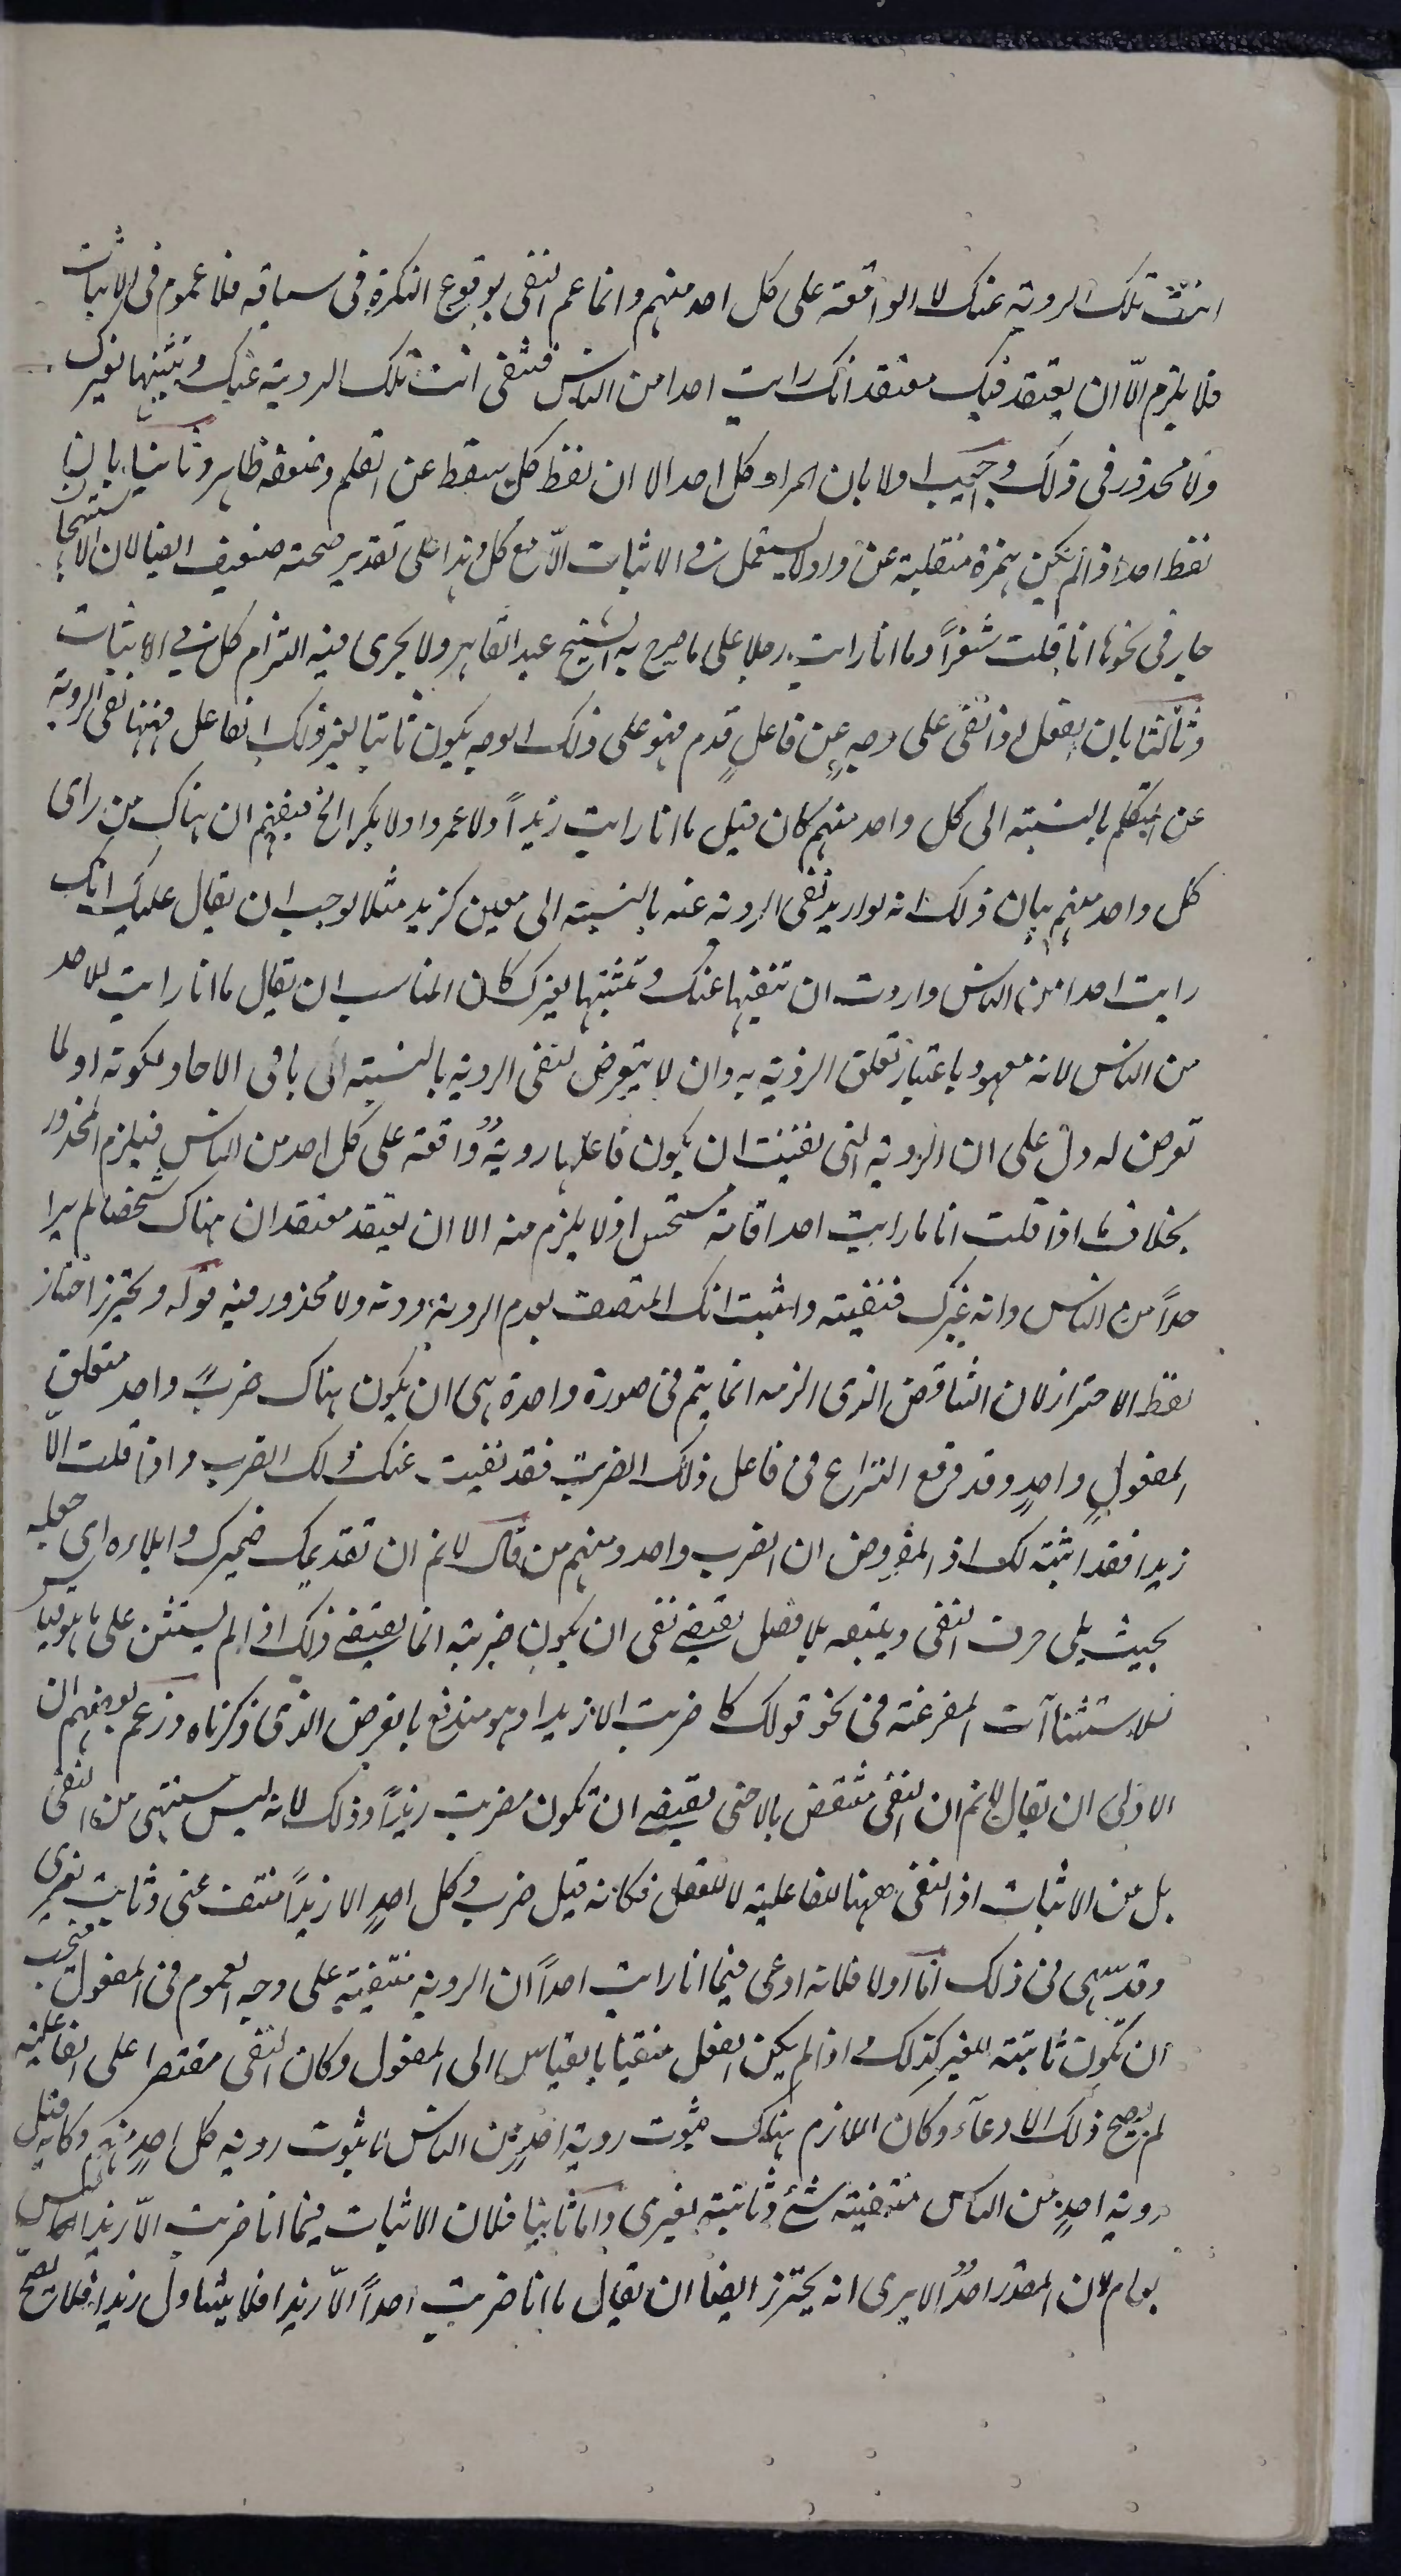 انت تلك الروية عنك لا الواقعة على كل احد منهم وانما عم النفى بوقوع النكرة فى سياقه فلا عموم فى الاثبات
فلا يلزم الّا ان يعتقد فيك معتقد انك رايت احدا من الناس فتنفى انت تلك الروية عنك وتثبتها لغيرك
ولا محذور فى ذلك واجيب اولا بان المراد كل احد الا ان لفظ كل سقط عن القلم وضعفه ظاهر وثانيا بان
لفظ احد اذا لم يكن همزة منقلبة عن واو لا يستعمل فى الاثبات الّا مع كل وهذا على تقدير صحته ضعيف ايضا لان الاستقباح
جار فى نحو ما انا قلت شعراً وما انا رايت رجلا على ما صرح به الشيخ عبد القاهر ولا يجرى فيه التزام كل فى الاثبات
وثالثا بان الفعل اذا نفى على وجهٍ عن فاعلٍ قدم فهو على ذلك الوجه يكون ثابتا لغير ذلك الفاعل فههنا نفى الروية
عن المتكلم بالنسبة الى كل واحد منهم كان قيل ما انا رايت زيداً ولا عمروا ولا بكرا الخ فيفهم ان هناك من راى
كل واحد منهم بيان ذلك انه لو اريد نفى الروية عنه بالنسبة الى معين كزيد مثلا لوجب ان يقال عليك انك
رايت احدا من الناس واردت ان تنفيها عنك وتثبتها لغيرك كان المناسب ان يقال ما انا رايت للاحد
من الناس لانه معهود باعتبار تعلق الروية به وان لا يتعرض لنفى الروية بالنسبة الى باقى الاحاد لكونه اولما
تعرض له دل على ان الروية التى نفيت ان يكون فاعلها رويةٌ واقعة على كل احد من الناس فيلزم المحذور
بخلاف ما اذا قلت انا ما رايت احدا فانه مستحسن اذ لا يلزم منه الا ان يعتقد معتقد ان هناك شخصا لم يرا
حداً من الناس وانه غيرك فنفيته واثبت انك المتصف بعدم الروية دونه ولا محذور فيه قوله ويحترز اختار
لفظ الاحتراز لان التناقض الذى الزمه انما يتم فى صورة واحدة هى ان يكون هناك ضربٌ واحد متعلق
المفعولٍ واحدٍ وقد وقع النزاع فى فاعل ذلك الضرب فقد نفيت عنك ذلك الضرب واذا قلت الّا
زيدا فقد اثبته لك اذ المفروض ان الضرب واحد ومنهم من قال لا نم ان تقديمك ضميرك وايلاءه اى جعله
بحيث يلى حرف النفى ويتبعه بلا فصل يقتضى نفى ان يكون ضربته انما يقتضى ذلك اذا لم يستثن على ما هو قياس
للاستثناآت المفرغة فى نحو قولك ما ضربت الا زيدا وهو مندفع بالفرض الذى ذكرناه وزعم بعضهم ان
الاولى ان يقال لا نم ان النفى منتقض بالا حتى يقتضى ان تكون مضربت زيداً وذلك لانه ليس مستثنى من النفى
بل من الاثبات اذ النفى ههنا للفاعلية لا للفعل فكانه قيل ضرب كل احدٍ الا زيداً منتف عنى وثابت لغيرى
وقد سهى فى ذلك اما اولا فلانه ادعى فيما انا رايت احداً ان الروية منتفية على وجه العموم فى المفعول فيجب
ان تكون ثابتة للغير كذلك واذا لم يكن الفعل منفيا بالقياس الى المفعول وكان النفى مقتصرا على الفاعلية
لم يصح ذلك الادعآء وكان اللازم هناك ثبوت روية احدٍ من الناس لا ثبوت روية كل احدٍ منهم وكانه قيل
روية احدٍ من الناس منتفية عنى وثابتة لغيرى واما ثانيا فلان الاثبات فيما انا ضربت الّا زيدا ليس
بعام لان المقدر احدٌ الا يرى انه يحترز ايضا ان يقال ما انا ضربت احداً الّا زيدا فلا يتناول زيدا فلا يصح